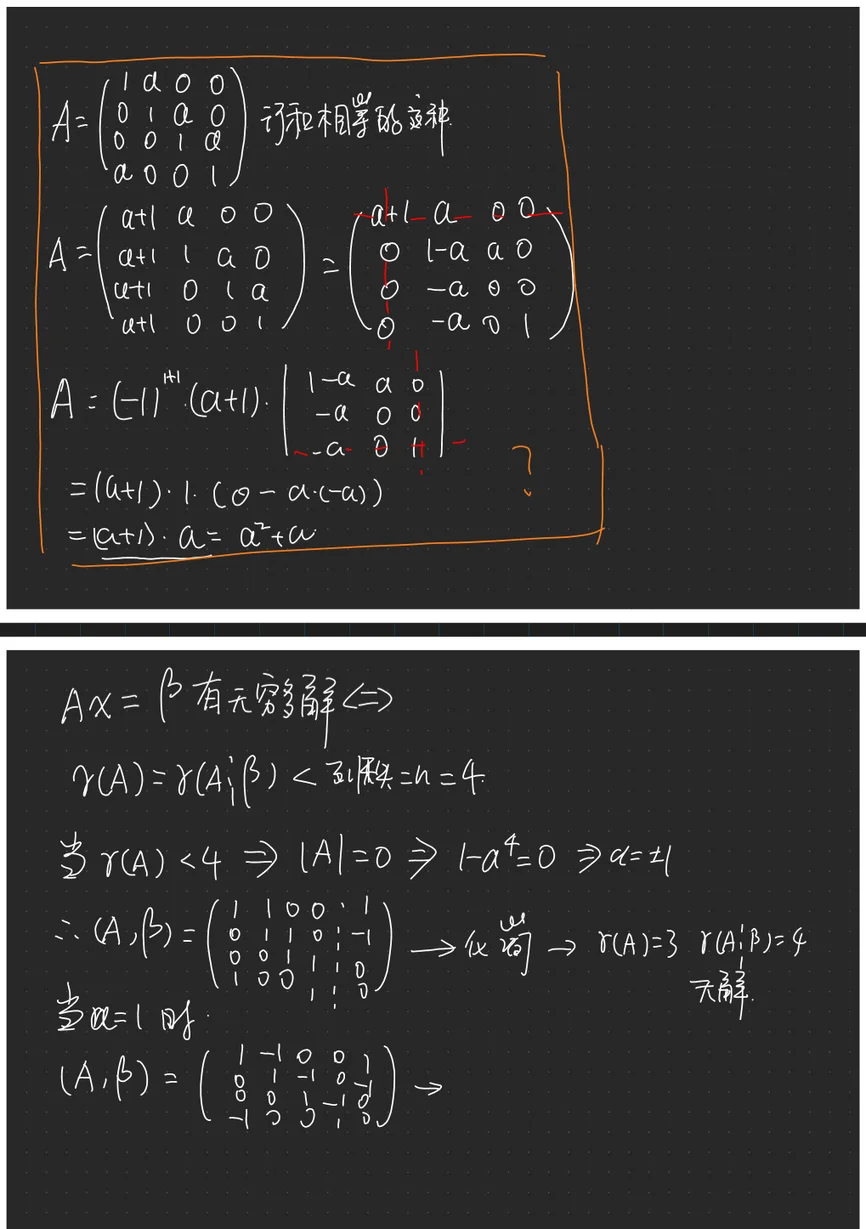 A = ( 1 a 0 0
0 1 a 0
0 0 1 a
a 0 0 1 ) 行和相等的这种
A = ( a+1 a 0 0
a+1 1 a 0
a+1 0 1 a
a+1 0 0 1 ) = ( a+1 a 0 0
0 1-a a 0
0 -a 0 0
0 -a 0 1 )
A = (-1)^{1+1}·(a+1)· | 1-a a 0
-a 0 0
-a 0 1 |
= (a+1)·1·(0 - a·(-a))
= (a+1)·a = a²+a
?
Ax = β 有无穷多解 <=>
r(A) = r(A¦β) < 列数 = n = 4
当 r(A) < 4 ⇒ |A| = 0 ⇒ 1-a⁴ = 0 ⇒ a = ±1
∴ (A,β) = ( 1 1 0 0 ¦ 1
0 1 1 0 ¦ -1
0 0 1 1 ¦ 0
1 0 0 1 ¦ 0 ) → 化简 → r(A)=3 r(A¦β)=4
无解.
当a=1时.
(A,β) = ( 1 -1 0 0 1
0 1 -1 0 -1
0 0 1 -1 0
-1 0 0 1 0 ) →